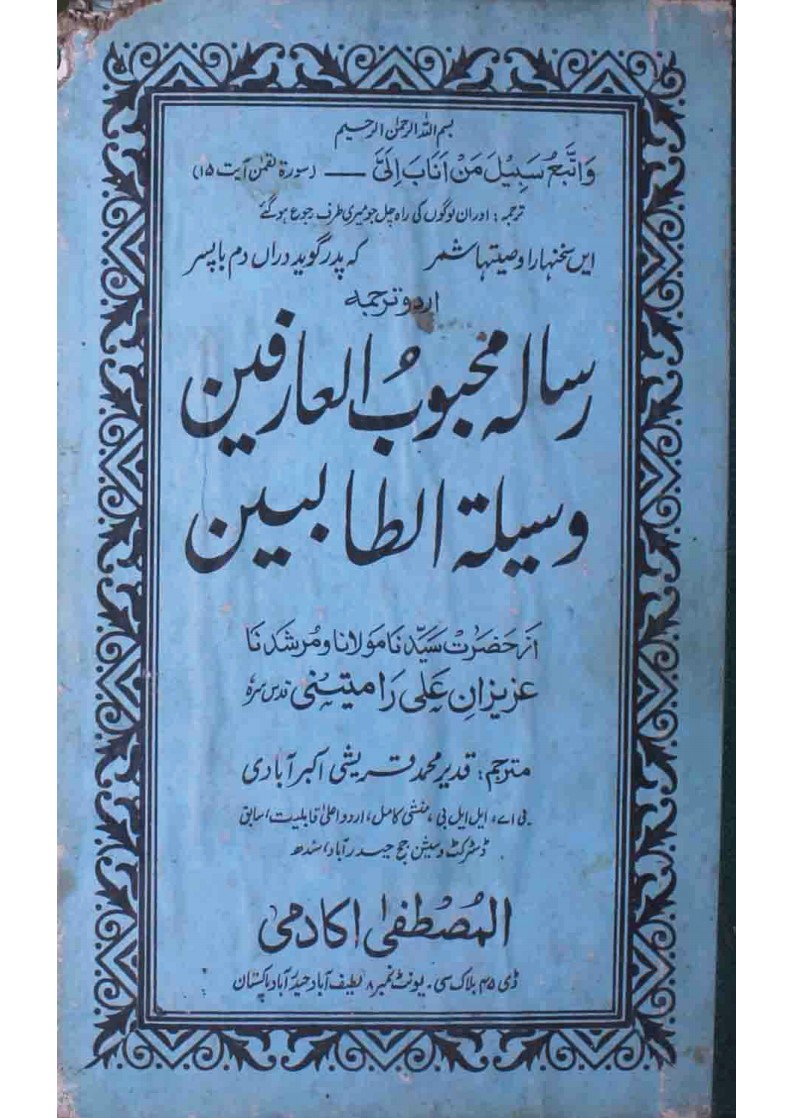 بسم اللہ الرحمٰن الرحیم
وَاتَّبِعْ سَبِيْلَ مَنْ اَنَابَ اِلَیَّ — (سورۃ لقمٰن آیت ۱۵)
ترجمہ: اور ان لوگوں کی راہ چل جو میری طرف رجوع ہوگئے
ایں سخنہارا وصیتہا شمر کہ پدر گوید دراں دم با پسر
اردو ترجمہ
رسالہ محبوبُ العارفین
وسیلۃ الطالبین
از حضرت سیّدنا مولانا و مُرشدنا
عزیزانِ علی رامیتنی قدس سرہٗ
مترجم: قدیر محمد قریشی اکبر آبادی
بی اے، ایل ایل بی، منشی کامل، اردو اعلیٰ قابلیت، سابق
ڈسٹرکٹ و سیشن جج حیدرآباد، سندھ
المُصطفیٰ اکادمی
ڈی ۴۵ بلاک سی۔ یونٹ نمبر ۸ لطیف آباد حیدرآباد پاکستان